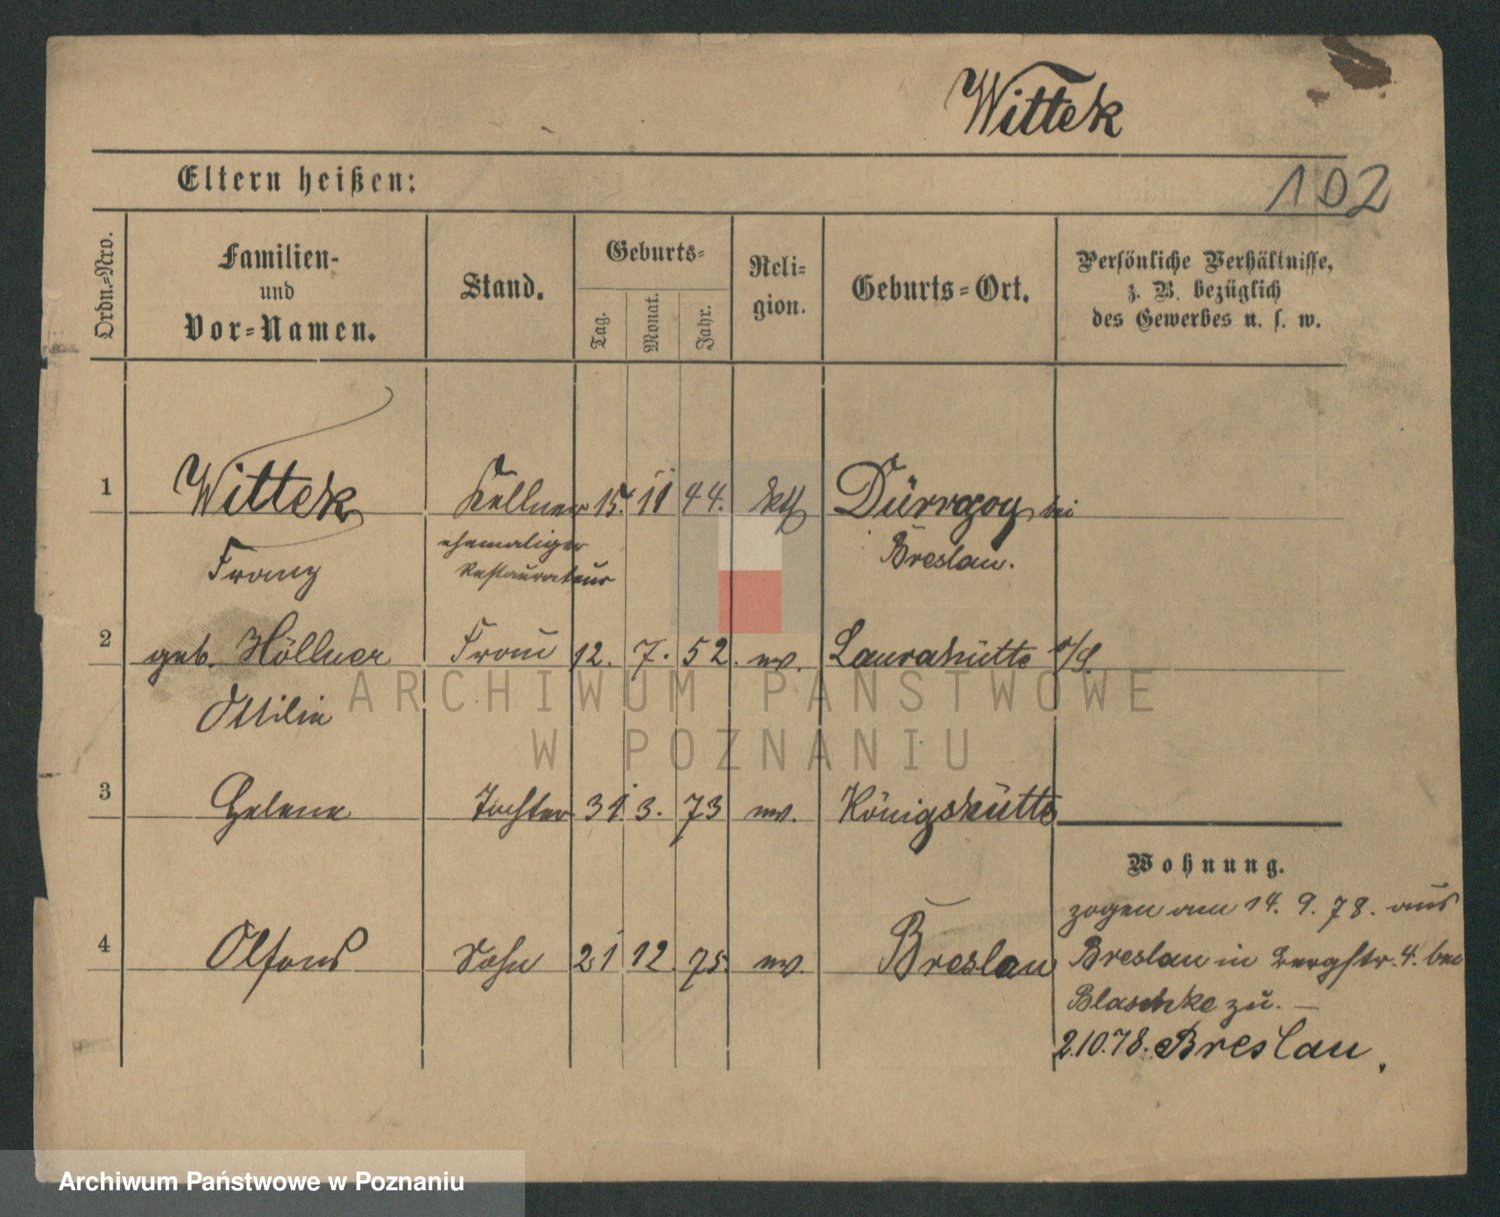 Wittek
Eltern heißen:
102
Ordn.-Nro.
Familien-
und
Vor-Namen.
Stand.
Geburts-
Tag.
Monat.
Jahr.
Reli-
gion.
Geburts-Ort.
Persönliche Verhältnisse,
z. B. bezüglich
des Gewerbes u. s. w.
1 Wittek Kellner 15. 11 44. kth Dürrgoy bei
ehemaliger
Breslau.
Franz Restaurateur
2 geb. Höllner Frau 12. 7. 52. Laurahütte o/S.
Ottilie
3 Helene Tochter 31 3. 73 Königshütte
Wohnung.
zogen am 14. 9. 78. aus
4 Alfons Sohn 21 12. 75. Breslau
Breslau in Bergstr. 4. bei
Blaschke zu. —
2.10.78. Breslau.
ARCHIWUM PAŃSTWOWE
W POZNANIU
Archiwum Państwowe w Poznaniu